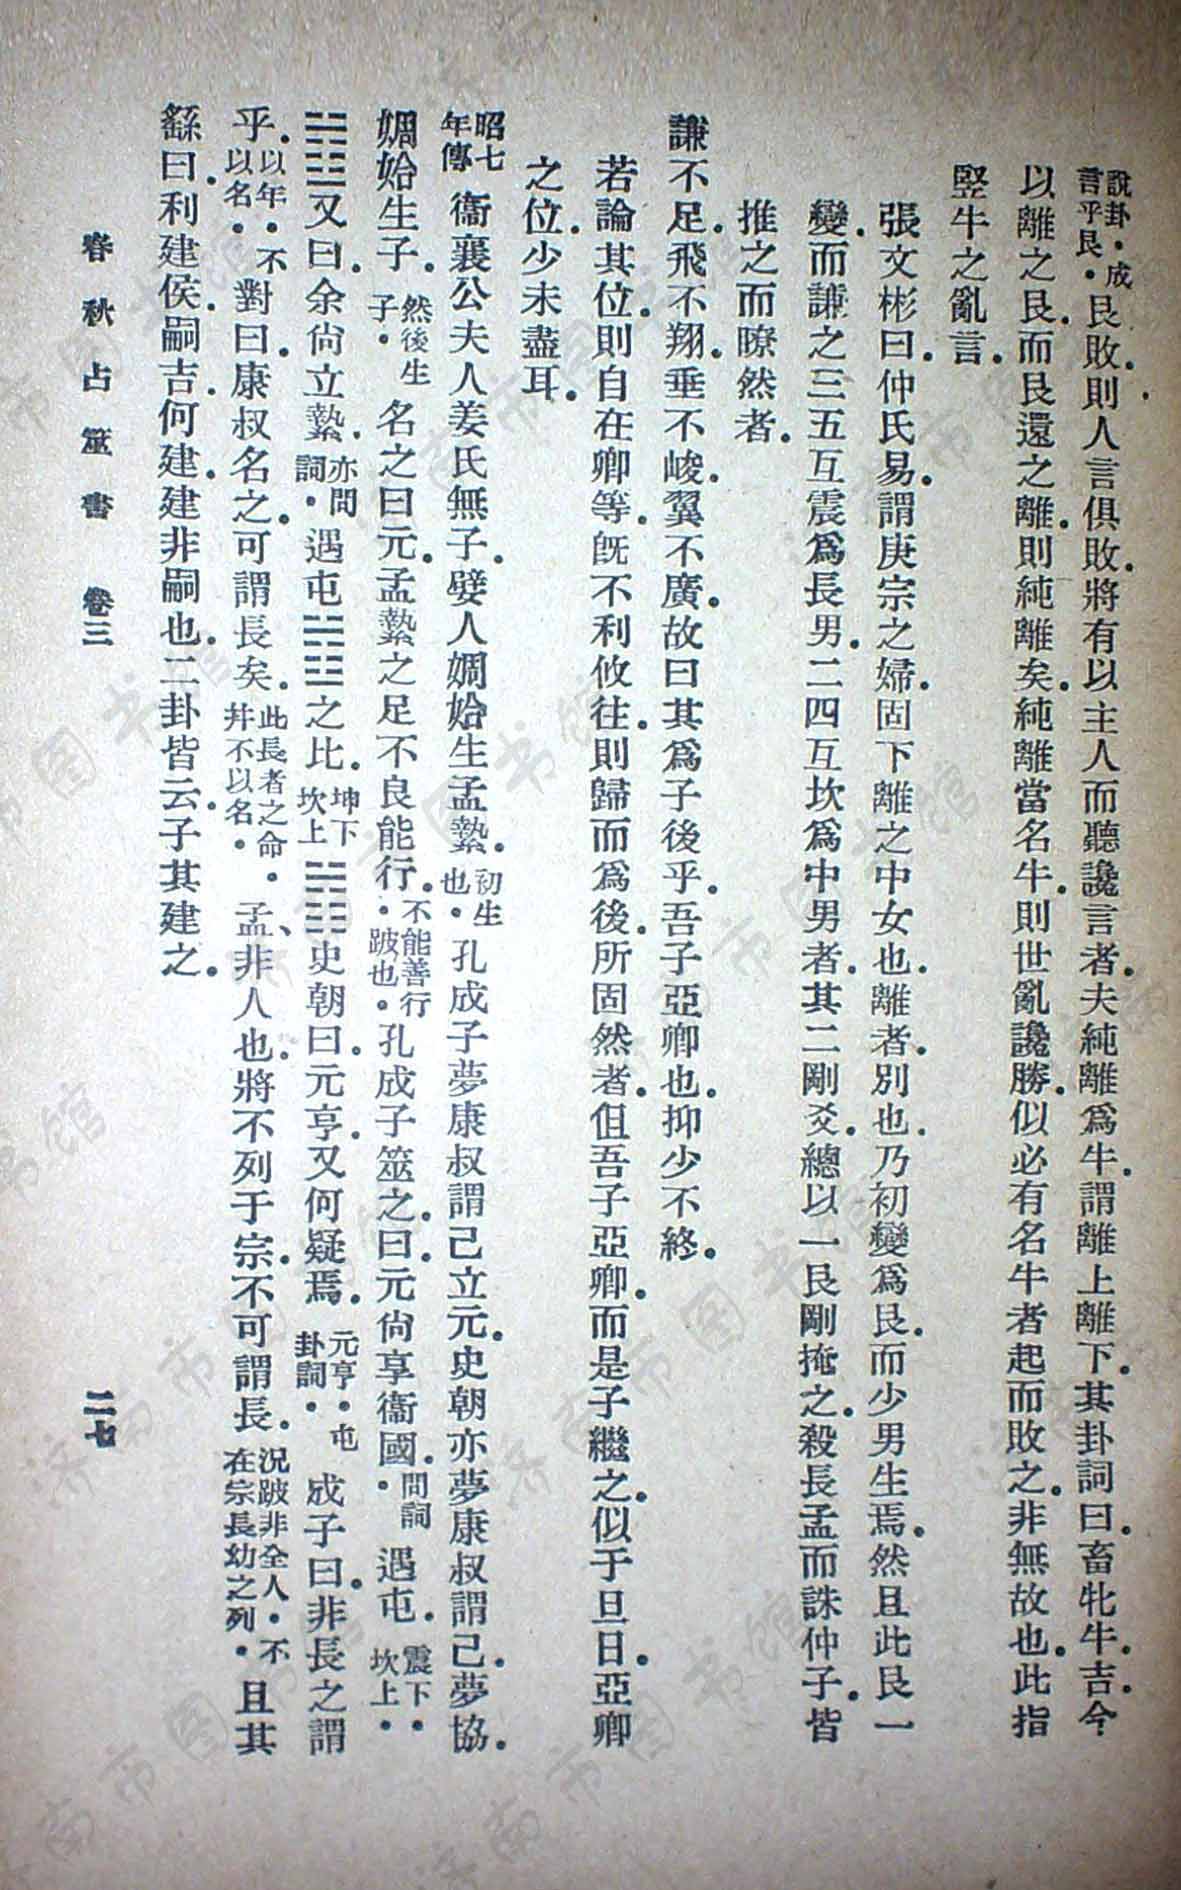 說卦·成言乎艮·艮敗則人言俱敗.將有以主人而聽讒言者.夫純離爲牛.謂離上離下.其卦詞曰.畜牝牛.吉.今
以離之艮.而艮還之離.則純離矣.純離當名牛.則世亂讒勝.似必有名牛者起而敗之.非無故也.此指
豎牛之亂言.
張文彬曰.仲氏易.謂庚宗之婦.固下離之中女也.離者.別也.乃初變爲艮.而少男生焉.然且此艮一
變.而謙之三五互震爲長男.二四互坎爲中男者.其二剛爻.總以一艮剛掩之.殺長孟而誅仲子.皆
推之而瞭然者.
謙不足.飛不翔.垂不峻.翼不廣.故曰其爲子後乎.吾子亞卿也.抑少不終.
若論其位.則自在卿等.旣不利攸往.則歸而爲後.所固然者.但吾子亞卿.而是子繼之.似于旦日.亞卿
之位.少未盡耳.
昭七年傳 衞襄公夫人姜氏無子.嬖人婤姶生孟縶.初生也·孔成子夢康叔謂己立元.史朝亦夢康叔謂己.夢協.
婤姶生子.然後生子·名之曰元.孟縶之足不良能行.不能善行·跛也·孔成子筮之.曰.元尙享衞國.問詞·遇屯.震下·坎上·
䷂又曰.余尙立縶.亦問詞·遇屯䷂之比.坤下坎上䷇史朝曰.元亨.又何疑焉.元亨·屯卦詞·成子曰.非長之謂
乎.以年·不以名·對曰.康叔名之.可謂長矣.此長者之命·幷不以名·孟非人也.將不列于宗.不可謂長.況跛非全人·不在宗長幼之列·且其
繇曰.利建侯.嗣吉.何建.建非嗣也.二卦皆云.子其建之.
春秋占筮書 卷三 二七
济南市图书馆